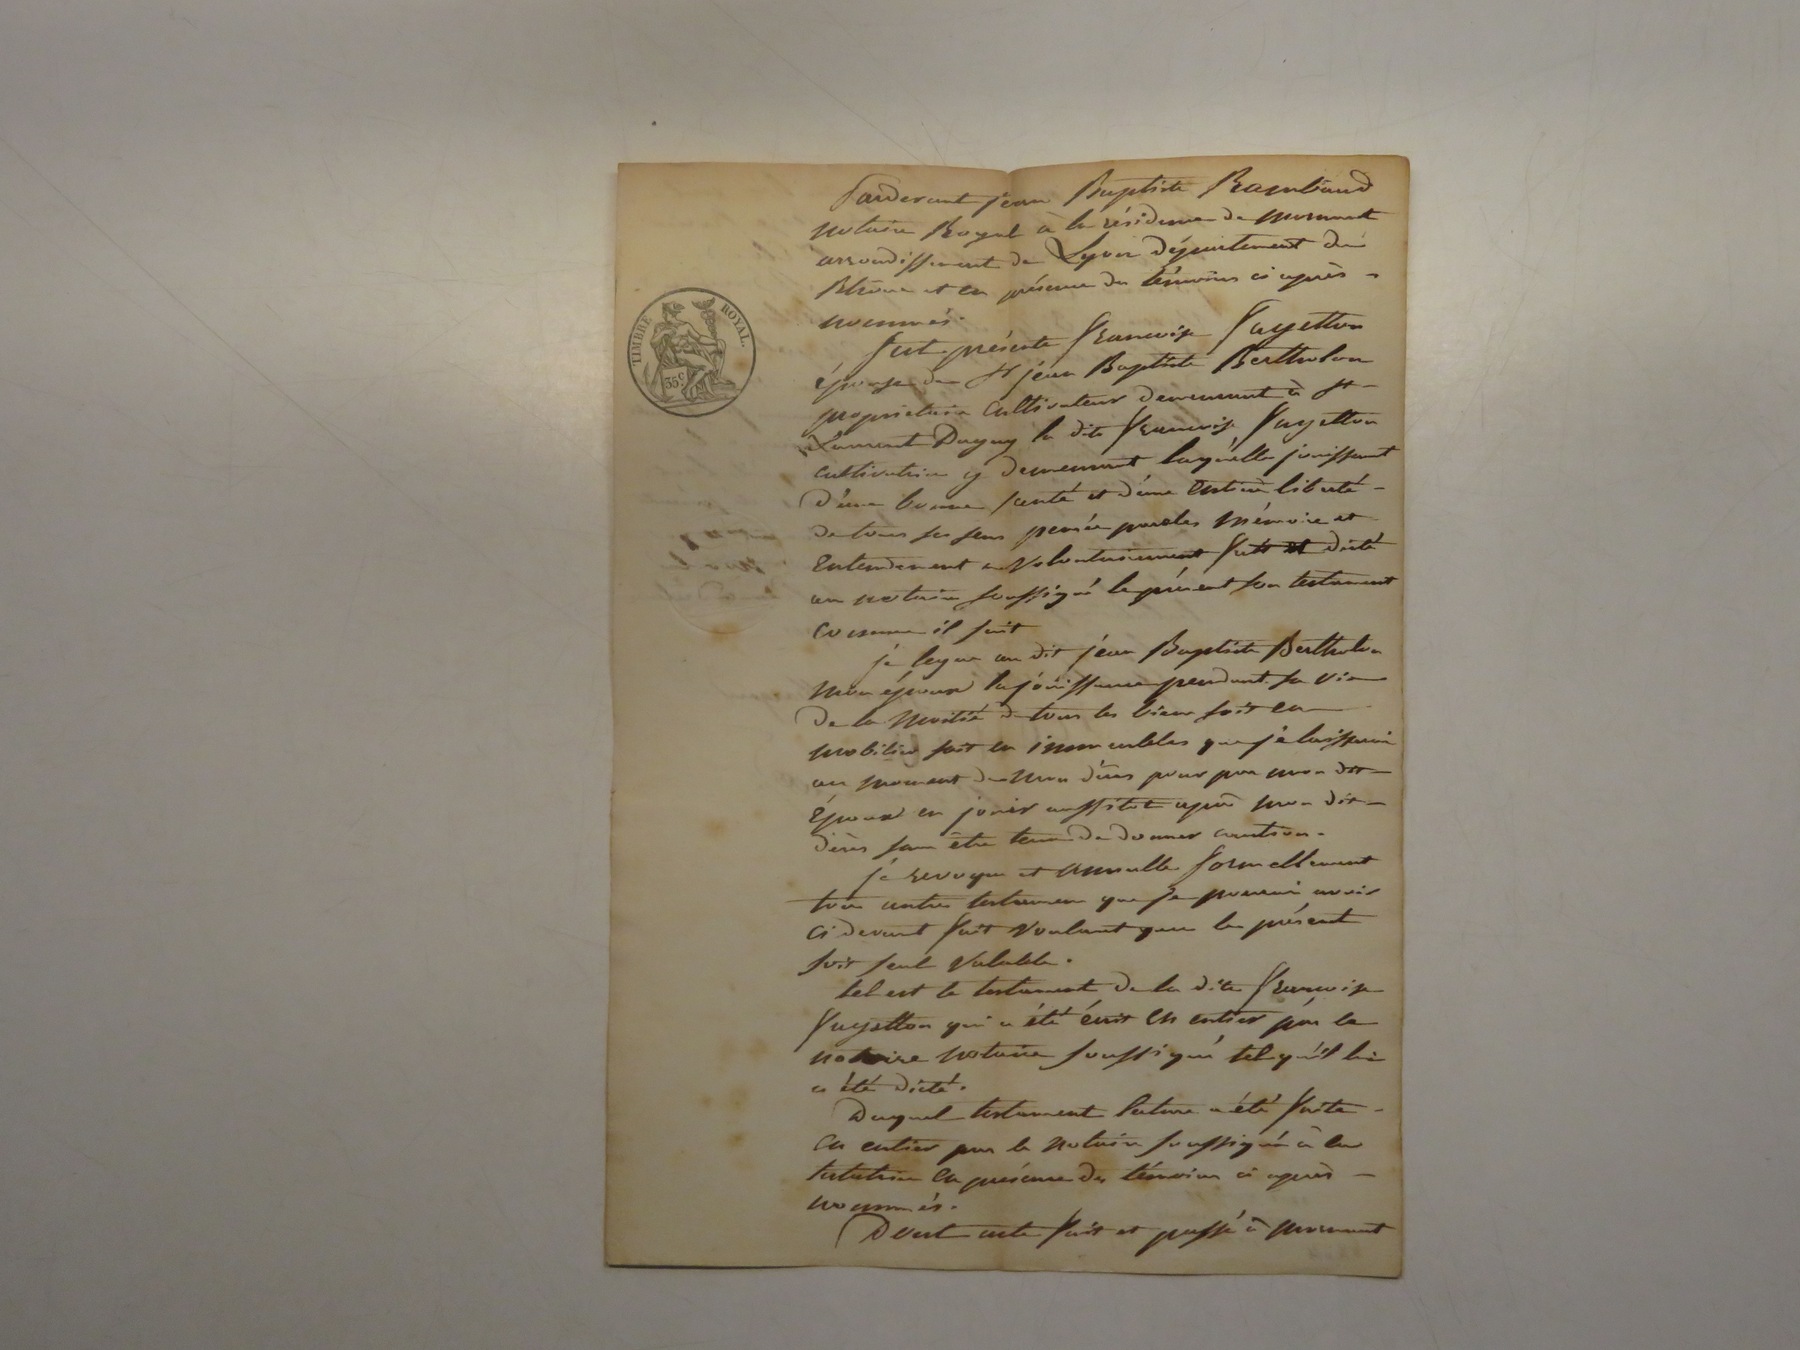 Pardevant jean Baptiste Rambaud
notaire Royal à la résidence de mornant
arrondissement de Lyon département du
Rhône et en présence des témoins ci après -
nommés.
TIMBRE ROYAL.
35c
fut présente francoise fayetton
épouse de st jean Baptiste Bertholon
propriétaire cultivateur demeurant à st
Laurent Dagny la dite francoise fayetton
cultivatrice y demeurant, laquelle jouissant
d'une bonne santé et d'une entière liberté -
de tous ses sens pensée paroles mémoire et
Entendement a volontairement fait et dicté
au notaire soussigné le présent son testament
comme il suit
je legue au dit jean Baptiste Bertholon
mon époux la jouissance pendant sa vie
De la moitié de tous les biens soit en
mobilier soit en immeubles que je laisserai
au moment de mon décès pour par mon dit
Epoux en jouir aussitot après mon dit
décès sans être tenu de donner caution.
je revoque et annulle formellement
tous autres testamens que je pourrai avoir
ci devant fait voulant que le présent
soit seul valable.
tel est le testament de la dite francoise
fayetton qui a été écrit en entier par le
notaire notaire soussigné tel qu'il lui
a été dicté.
Duquel testament lecture a été faite -
en entier par le notaire soussigné à la
testatrice en présence des témoins ci après -
nommés.
Dont acte fait et passé à mornant